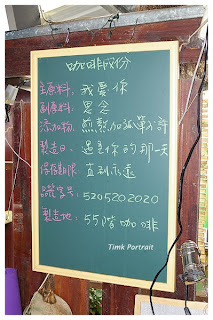 咖啡成份
主原料：我愛你
副原料：思念
添加物：煎熬加孤單入許
製造日：遇見你的那一天
保存期限：直到永遠
許可字号：520520 2020
製造地：55階咖啡
Timk Portrait